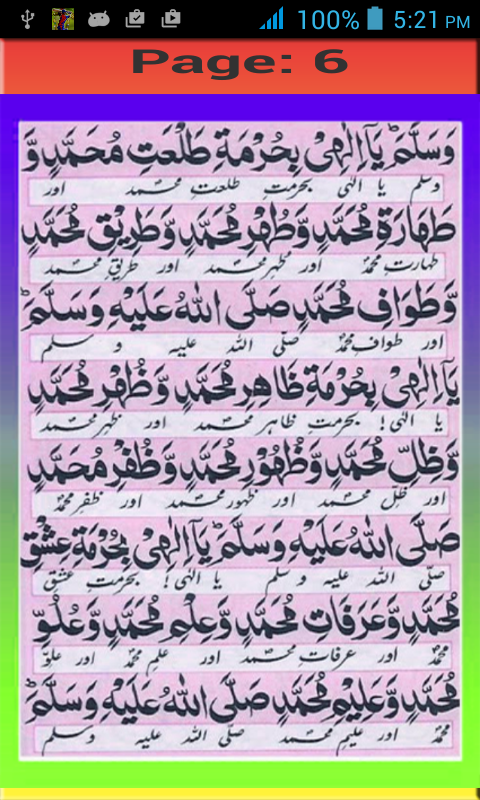 100% 5:21 PM
Page: 6
وَسَلَّمَ يَآ اِلٰهِیْ بِحُرْمَةِ طَلْعَتِ مُحَمَّدٍ وَّ
وسلم یا الٰہی بحرمتِ طلعتِ محمد اور
طَهَارَةِ مُحَمَّدٍ وَّطُهْرِ مُحَمَّدٍ وَّطَرِيْقِ مُحَمَّدٍ
طہارتِ محمد اور طہرِ محمد اور طریقِ محمد
وَّطَوَافِ مُحَمَّدٍ صَلَّی اللهُ عَلَيْهِ وَسَلَّمَ
اور طوافِ محمد صلّی اللہ علیہ و سلم
يَآ اِلٰهِیْ بِحُرْمَةِ ظَاهِرِ مُحَمَّدٍ وَّظُهْرِ مُحَمَّدٍ
یا الٰہی! بحرمتِ ظاہر محمد اور ظہر محمد
وَّظِلِّ مُحَمَّدٍ وَّظُهُوْرِ مُحَمَّدٍ وَّظُفْرِ مُحَمَّدٍ
اور ظلِ محمد اور ظہور محمد اور ظفر محمد
صَلَّی اللهُ عَلَيْهِ وَسَلَّمَ يَآ اِلٰهِیْ بِحُرْمَةِ عِشْقِ
صلّی اللہ علیہ و سلم یا الٰہی! بحرمتِ عشقِ
مُحَمَّدٍ وَّعَرَفَاتِ مُحَمَّدٍ وَّعِلْمِ مُحَمَّدٍ وَّعُلُوِّ
محمد اور عرفاتِ محمد اور علمِ محمد اور علوِّ
مُحَمَّدٍ وَّعَلِيْمِ مُحَمَّدٍ صَلَّی اللهُ عَلَيْهِ وَسَلَّمَ
محمد اور علیمِ محمد صلّی اللہ علیہ وسلم